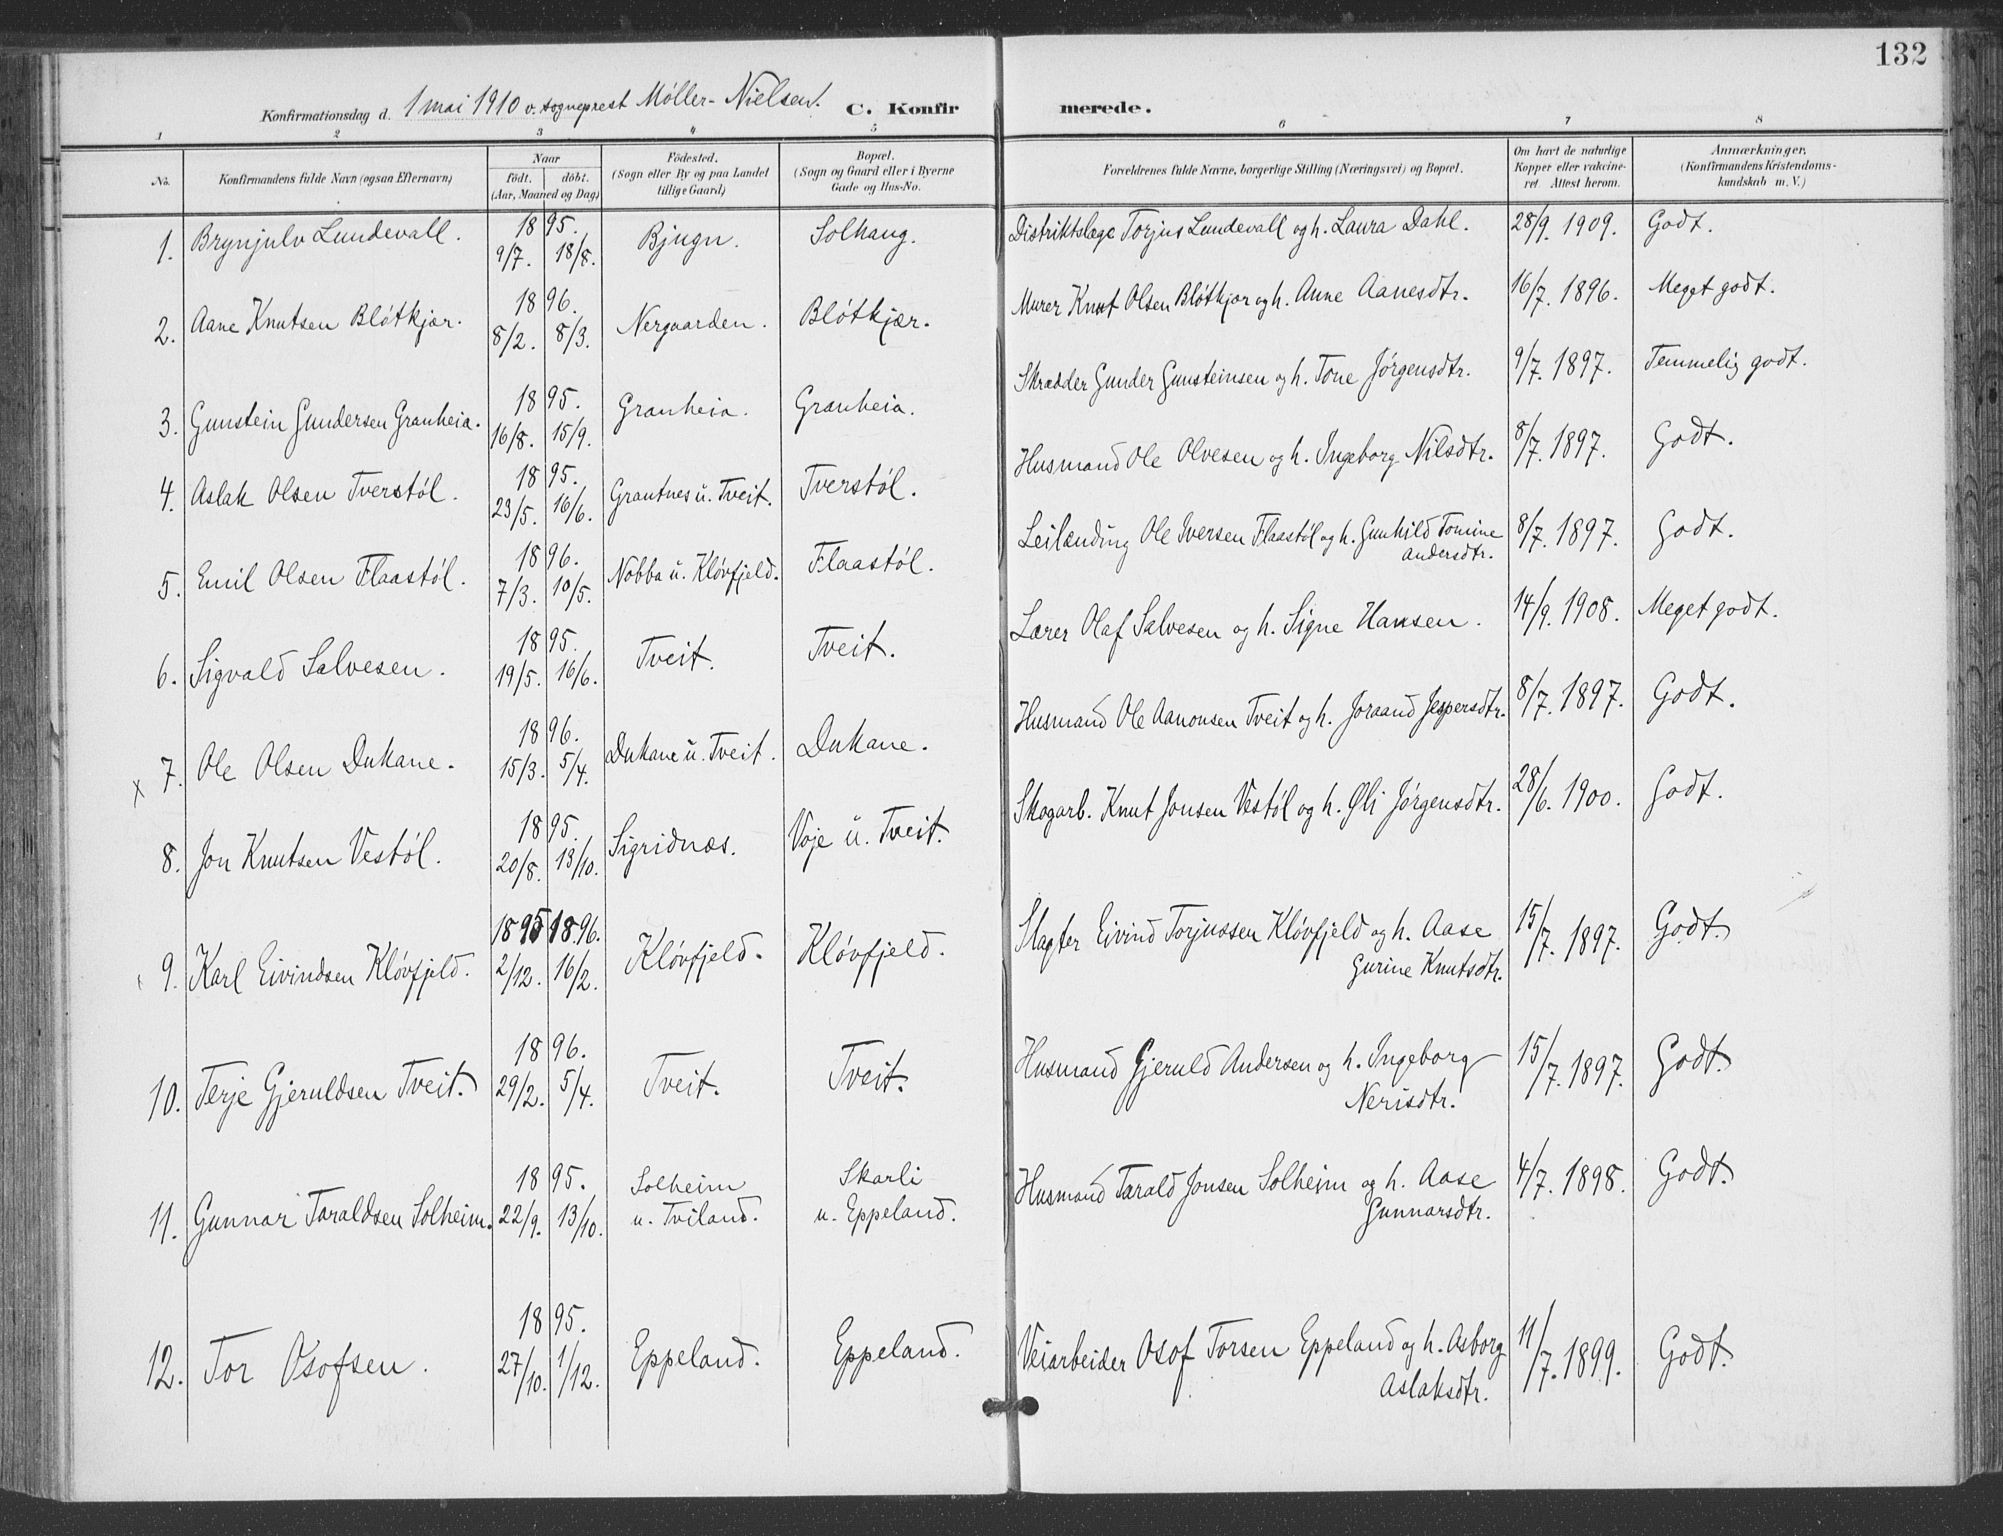 132
Konfirmationsdag d. 1 mai 1910 v. sogneprest Möller-Nielsen.
C. Konfirmerede.
1 2 3 4 5 6 7 8
No. Konfirmandens fulde Navn (ogsaa Efternavn) Naar födt. döbt. (Aar, Maaned og Dag) Födested. (Sogn eller By og paa Landet tillige Gaard) Bopæl. (Sogn og Gaard eller i Byerne Gade og Hus-No. Forældrenes fulde Navne, borgerlige Stilling (Næringsvei) og Bopæl. Om havt de naturlige Kopper eller vakcineret. Attest herom. Anmærkninger. (Konfirmandens Kristendomskundskab m. V.)
1. Brynjulv Lundevall. 1895. 9/7. 18/8. Bjugn. Solhaug. Distriktslæge Torjus Lundevall og h. Laura Dahl. 28/9. 1909. Godt.
2. Aane Knutsen Blótkjær. 1896. 8/2. 8/3. Nergaarden. Blótkjær. Murer Knut Olsen Blótkjær og h. Anne Aanesdtr. 16/7. 1896. Meget godt.
3. Gunstein Gundersen Granheia. 1895. 16/8. 15/9. Granheia. Granheia. Skrædder Gunder Gunsteinsen og h. Tone Jórgensdtr. 9/7. 1897. Temmelig godt.
4. Aslak Olsen Tverstól. 1895. 23/5. 16/6. Grautnes u. Tveit. Tverstól. Husmand Ole Olvesen og h. Ingeborg Nilsdtr. 8/7. 1897. Godt.
5. Emil Olsen Flaastól. 1896. 7/3. 10/5. Nobba u. Klóvfjeld. Flaastól. Leilænding Ole Iversen Flaastól og h. Gunhild Tomine Andersdtr. 8/7. 1897. Godt.
6. Sigvald Salvesen. 1895. 19/5. 16/6. Tveit. Tveit. Lærer Olaf Salvesen og h. Signe Hansen. 14/9. 1908. Meget godt.
x 7. Ole Olsen Dukane. 1896. 15/3. 5/4. Dukane u. Tveit. Dukane. Husmand Ole Aanonsen Tveit og h. Joraand Jespersdtr. 8/7. 1897. Godt.
8. Jon Knutsen Vestól. 1895. 20/8. 13/10. Sigridnæs. Voje u. Tveit. Skogarb. Knut Jonsen Vestól og h. Øli Jórgensdtr. 28/6. 1900. Godt.
9. Karl Eivindsen Klóvfjeld. 1895 1896. 2/12. 16/2. Klóvfjeld. Klóvfjeld. Slagter Eivind Torjussen Klóvfjeld og h. Aase Gurine Knutsdtr. 15/7. 1897. Godt.
10. Terje Gjeruldsen Tveit. 1896. 29/2. 5/4. Tveit. Tveit. Husmand Gjeruld Andersen og h. Ingeborg Nerisdtr. 15/7. 1897. Godt.
11. Gunnar Taraldsen Solheim. 1895. 22/9. 13/10. Solheim u. Tviland. Skarli u. Eppeland. Husmand Tarald Jonsen Solheim og h. Aase Gunnarsdtr. 4/7. 1898. Godt.
12. Tor Osofsen. 1895. 27/10. 1/12. Eppeland. Eppeland. Veiarbeider Osof Torsen Eppeland og h. Asborg Aslaksdtr. 11/7. 1899. Godt.